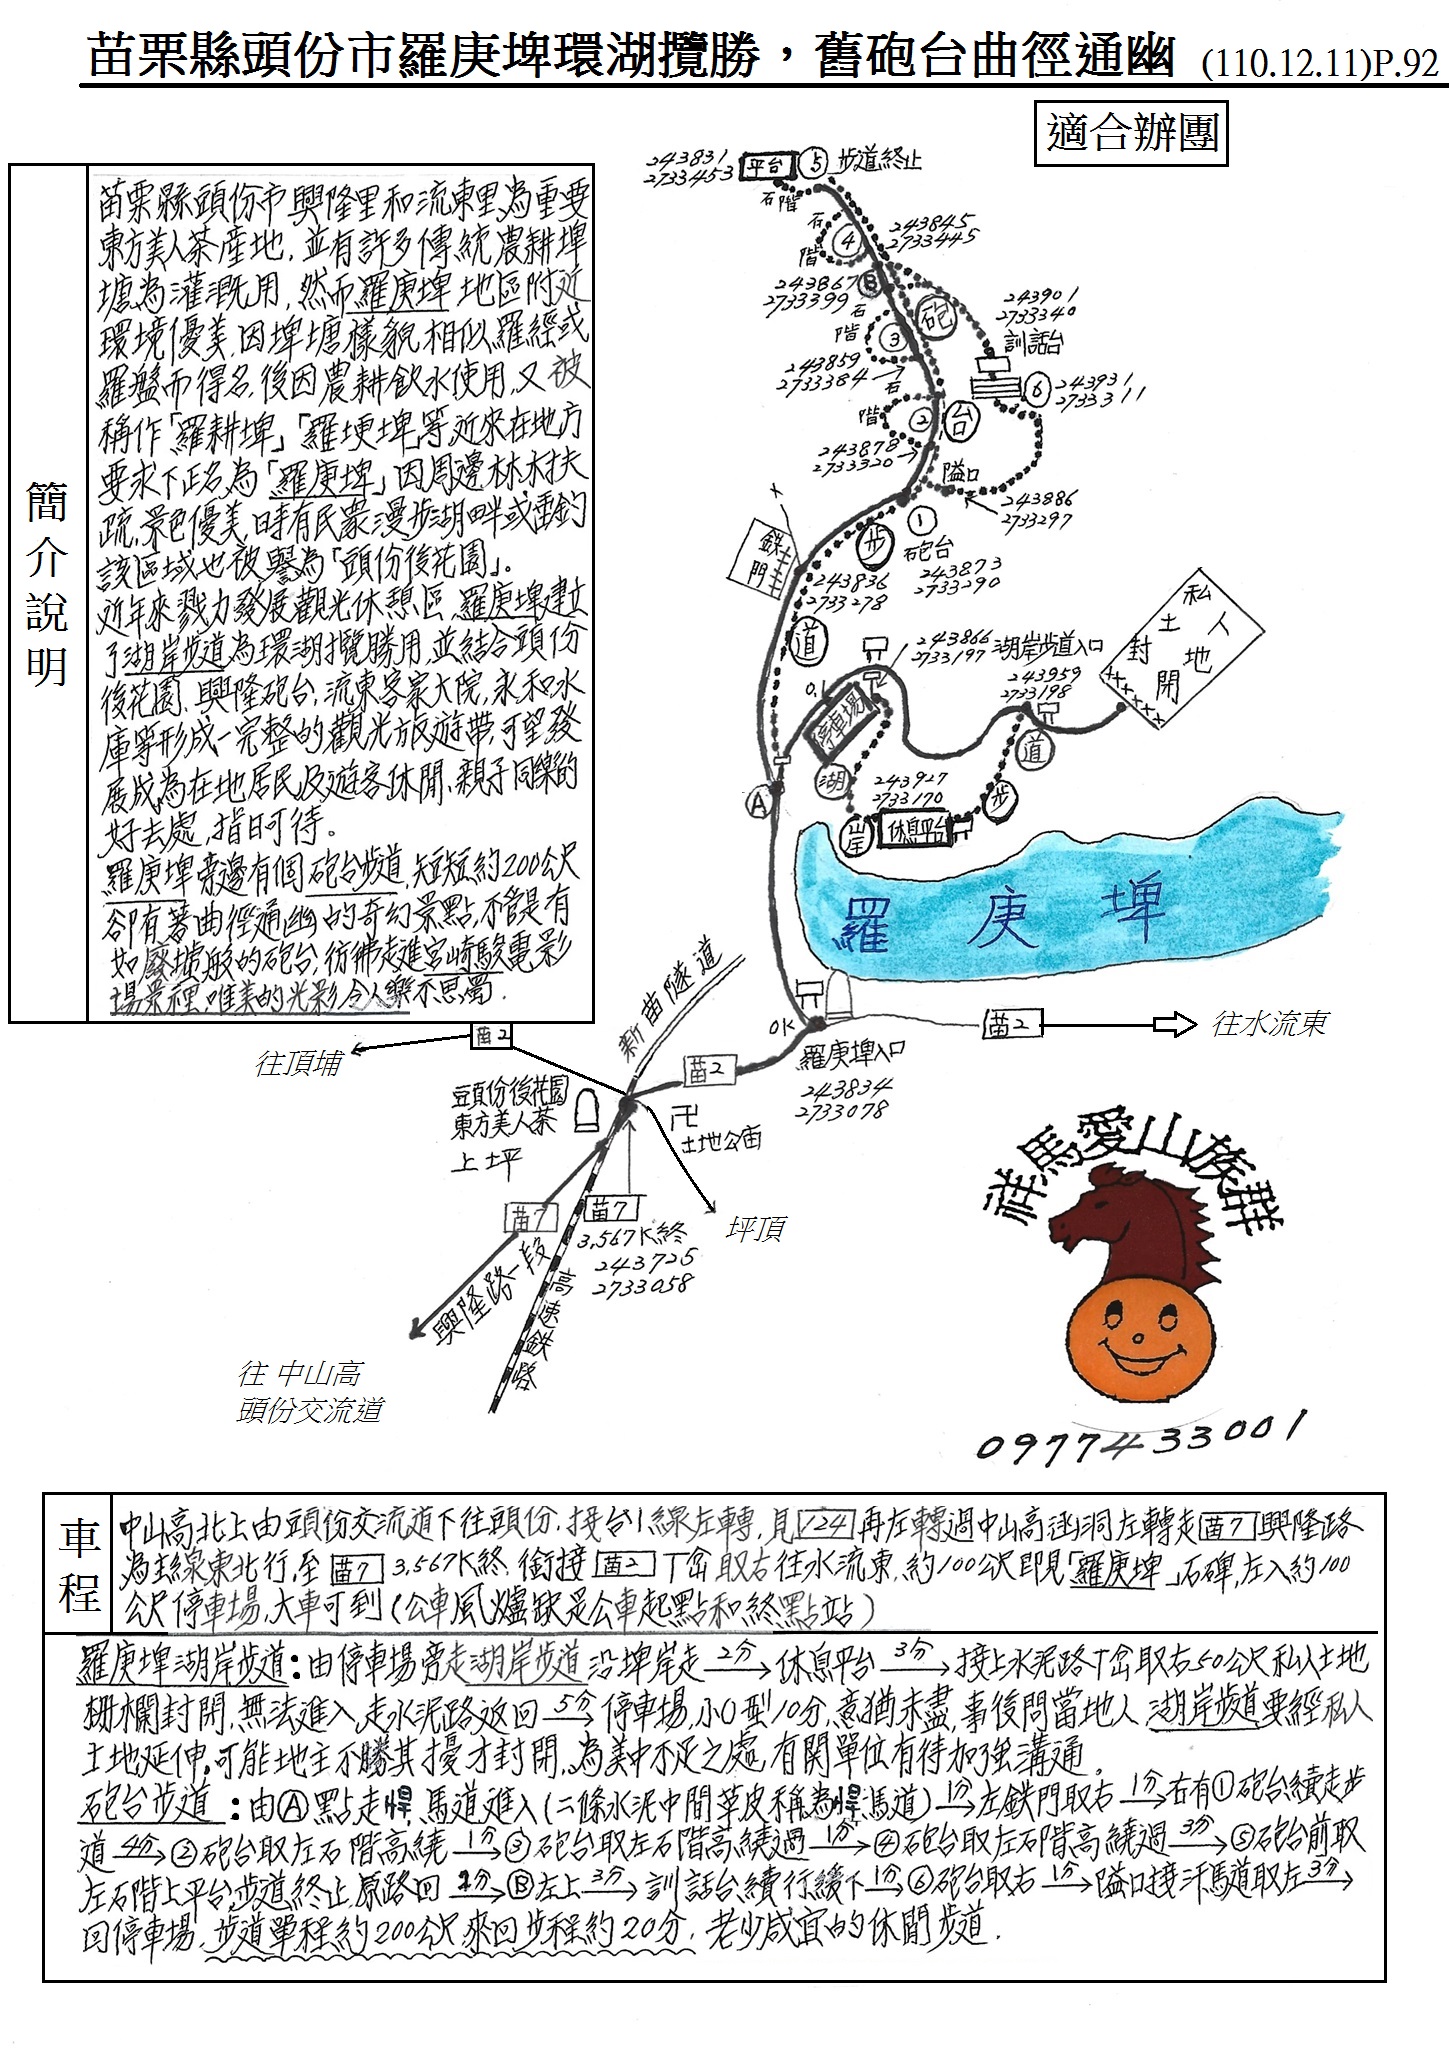 苗栗縣頭份市羅庚埤環湖攬勝，舊砲台曲徑通幽 (110.12.11)P.92
適合辦團
簡介說明
苗栗縣頭份市興隆里和流東里,為重要
東方美人茶產地,並有許多傳統農耕埤
塘為灌溉用,然而羅庚埤地區附近
環境優美,因埤塘樣貌相似羅經或
羅盤而得名,後因農耕飲水使用,又被
稱作「羅耕埤」「羅埂埤」等,近來在地方
要求下正名為「羅庚埤」因周邊林木扶
疏,景色優美,時有民眾漫步湖畔或垂釣
該區域也被譽為「頭份後花園」。
近年來戮力發展觀光休憩區,羅庚埤建立
了湖岸步道為環湖攬勝用,並結合頭份
後花園、興隆砲台,流東客家大院,永和水
庫等形成一完整的觀光旅遊帶,可望發
展成為在地居民及遊客休閒、親子同樂的
好去處,指日可待。
羅庚埤旁邊有個砲台步道,短短約200公尺
卻有著曲徑通幽的奇幻景點,不管是有
如廢墟般的砲台,彷彿走進宮崎駿電影
場景裡,唯美的光影令人樂不思蜀.
243831
2733453
平台
⑤ 步道終止
石階
石
階
④
243845
2733445
243867
2733399
Ⓑ
砲
243901
2733340
訓話台
石
階
③
243859
2733384
⑥
243931
2733311
石
階
②
台
243878
2733320
隘口
243886
2733297
①
砲台
243873
2733290
鉄門
步
243836
2733278
道
243866
2733197
湖岸步道入口
243959
2733198
私人土地封閉
0.1
停車場
湖
243927
2733170
道
步
Ⓐ
岸
休息平台
羅庚埤
新苗隧道
0K
苗2
往水流東
羅庚埤入口
243834
2733078
苗2
往頂埔
苗2
頭份後花園
東方美人茶
上坪
卍
土地公庙
坪頂
苗7
苗7
3,567K終
243725
2733058
興隆路一段
高速鉄路
往 中山高
頭份交流道
祥馬愛山族群
0977433001
車程
中山高北上由頭份交流道下往頭份,接台1線左轉,見124再左轉過中山高涵洞左轉走苗7興隆路
為主線東北行,至苗7 3,567K終,銜接苗2丁岔取右往水流東,約100公尺即見「羅庚埤」石碑,左入約100
公尺停車場,大車可到(公車風爐缺是公車起點和終點站)
羅庚埤湖岸步道:由停車場旁走湖岸步道沿埤岸走2分→休息平台3分→接上水泥路丁岔取右50公尺私人土地
柵欄封閉,無法進入,走水泥路返回5分→停車場,小O型10分,意猶未盡,事後問當地人,湖岸步道要經私人
土地延伸,可能地主不勝其擾才封閉,為美中不足之處,有関單位有待加強溝通。
砲台步道:由Ⓐ點走悍馬道進入(二條水泥中間草皮稱為悍馬道)1分→左鉄門取右1分→右有①砲台續走步
道4分→②砲台取左石階高繞1分→③砲台取左石階高繞過1分→④砲台取左石階高繞過3分→⑤砲台前取
左石階上平台,步道終止,原路回2分→Ⓑ左上3分→訓話台續行緩下1分→⑥砲台取右1分→隘口接汗馬道取左3分→
回停車場,步道單程約200公尺,來回步程約20分,老少咸宜的休閒步道.